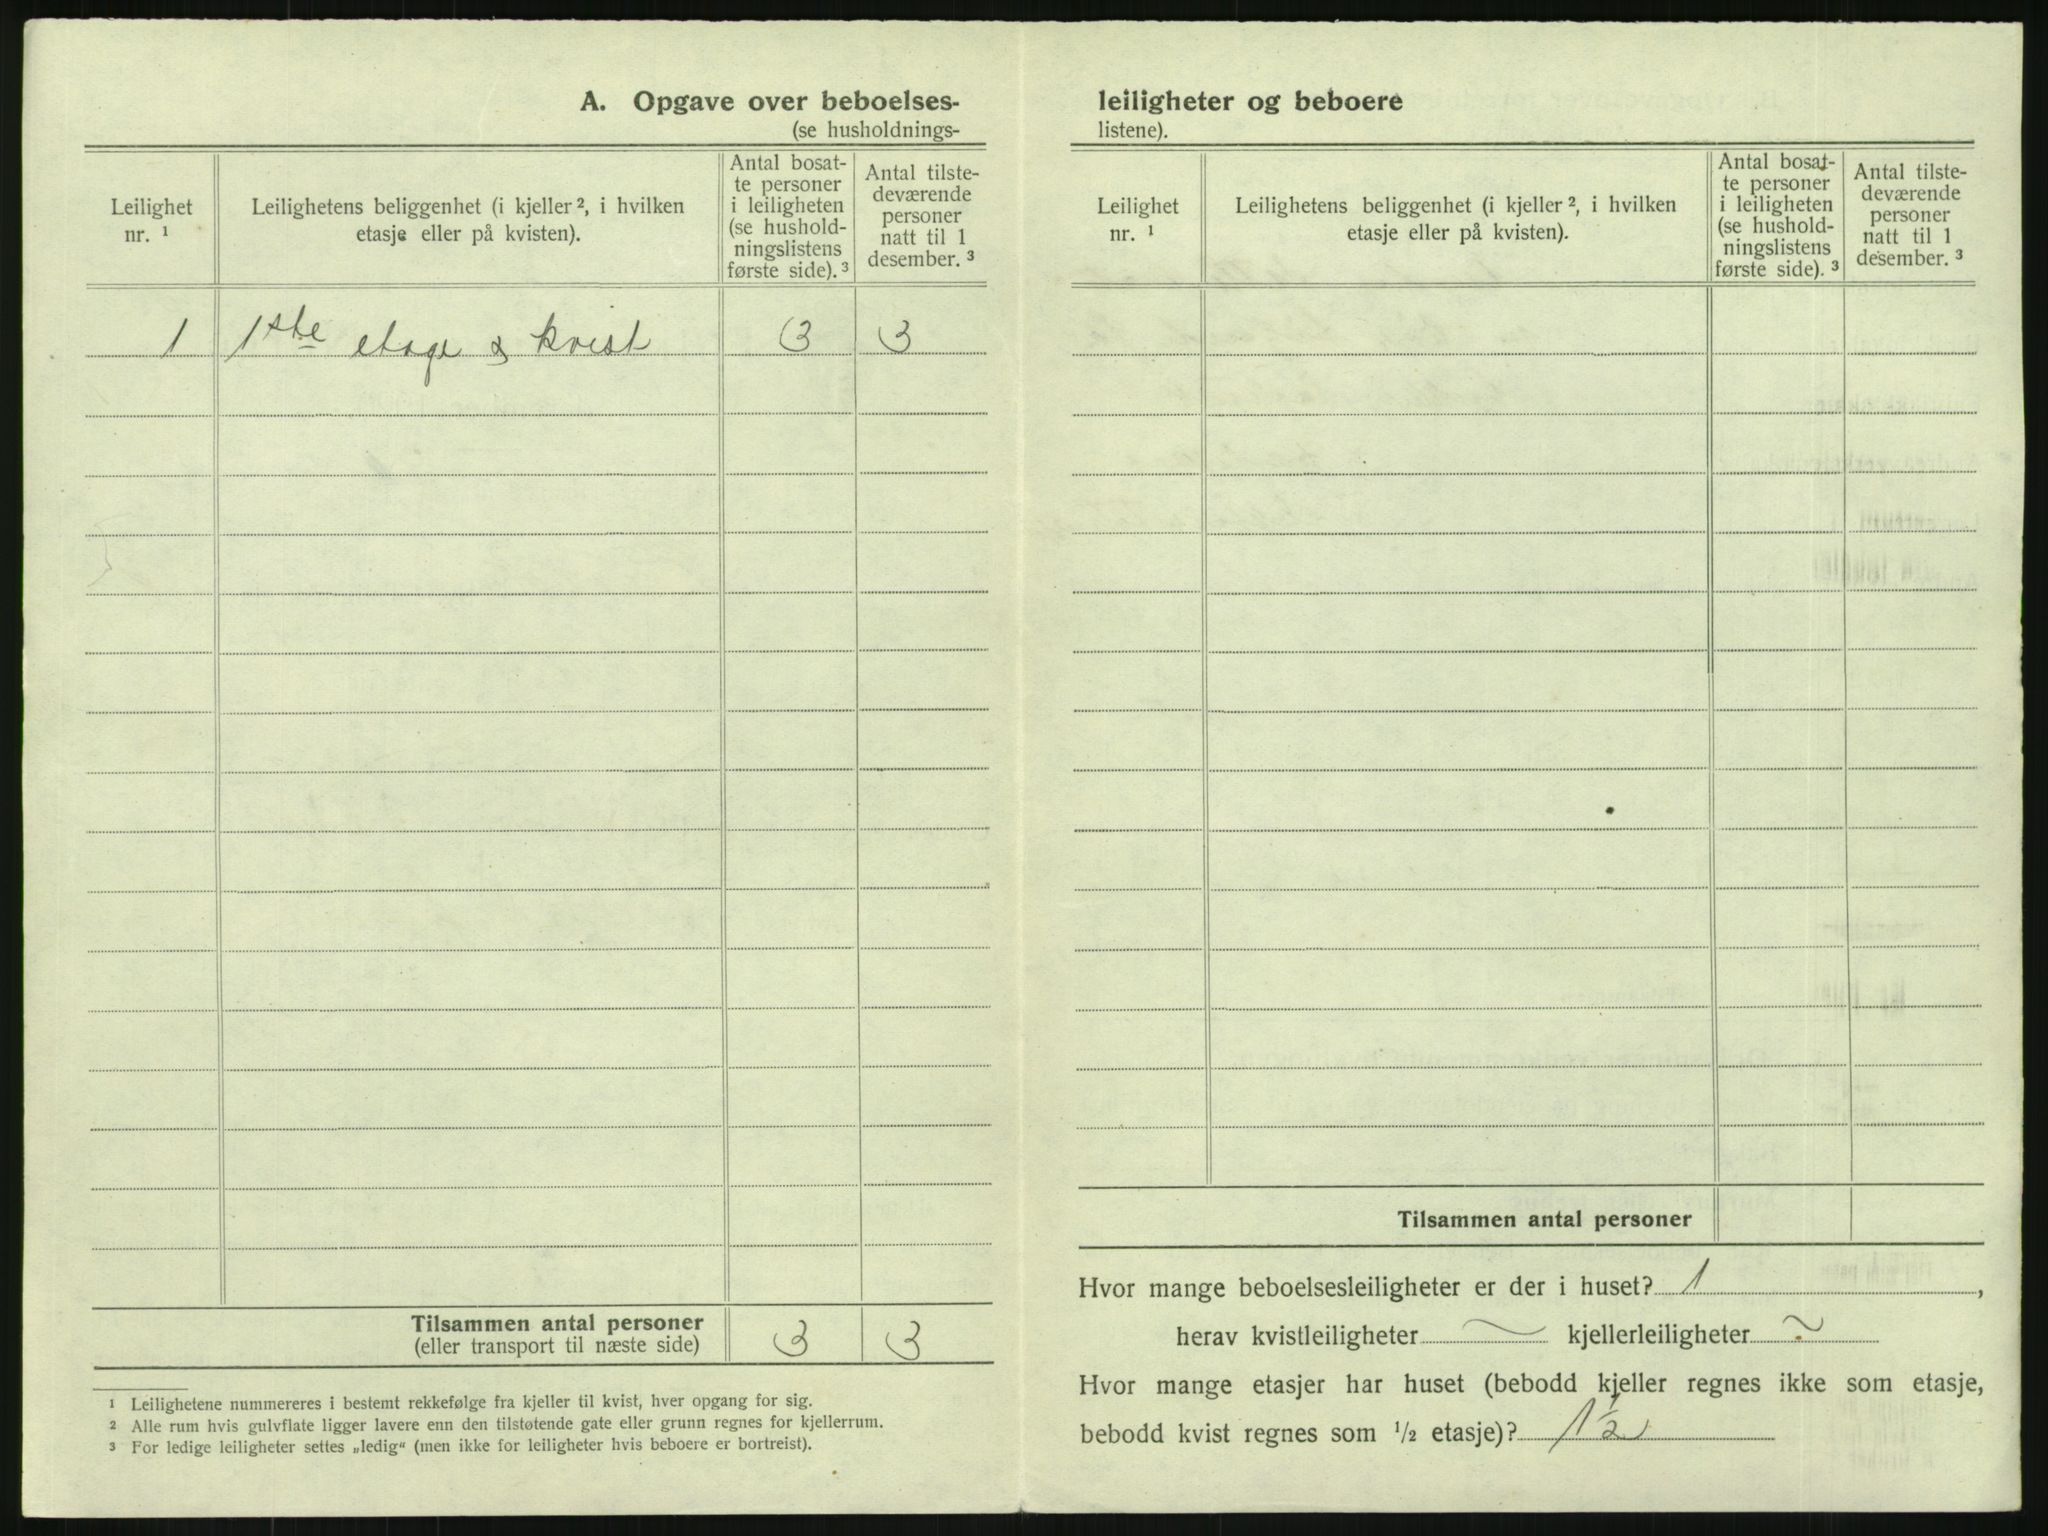 A. Opgave over beboelses-
(se husholdnings-
Leilighet
nr. 1
Leilighetens beliggenhet (i kjeller 2, i hvilken
etasje eller på kvisten).
Antal bosat-
te personer
i leiligheten
(se hushold-
ningslistens
første side). 3
Antal tilste-
deværende
personer
natt til 1
desember. 3
1 1ste etage & kvist 3 3
Tilsammen antal personer
(eller transport til næste side)
3 3
1 Leilighetene nummereres i bestemt rekkefølge fra kjeller til kvist, hver opgang for sig.
2 Alle rum hvis gulvflate ligger lavere enn den tilstøtende gate eller grunn regnes for kjellerrum.
3 For ledige leiligheter settes „ledig“ (men ikke for leiligheter hvis beboere er bortreist).
leiligheter og beboere
listene).
Leilighet
nr. 1
Leilighetens beliggenhet (i kjeller 2, i hvilken
etasje eller på kvisten).
Antal bosat-
te personer
i leiligheten
(se hushold-
ningslistens
første side). 3
Antal tilste-
deværende
personer
natt til 1
desember. 3
Tilsammen antal personer
Hvor mange beboelsesleiligheter er der i huset? 1 ,
herav kvistleiligheter ~ kjellerleiligheter ~
Hvor mange etasjer har huset (bebodd kjeller regnes ikke som etasje,
bebodd kvist regnes som 1/2 etasje)? 1 1/2